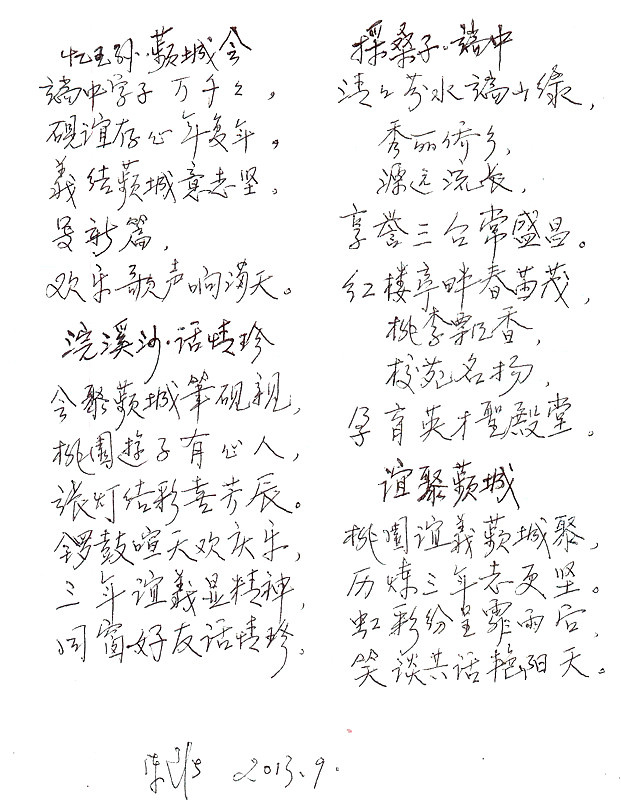 忆王孙·蘋城会
端中学子万千々，
砚谊存心年复年。
義结蘋城意志坚。
曼新篇，
欢乐歌声响满天。
浣溪沙·话情珍
会聚蘋城笔砚親，
桃園遊子有心人，
張灯结彩喜芳辰。
锣鼓喧天欢庆乐，
三年谊義显精神，
同窗好友话情珍。
採桑子·端中
清々芬水端山绿，
秀丽侨乡，
源远流长，
享誉三台常盛昌。
红楼亭畔春茵茂，
桃李飘香，
校苑名扬，
孕育英才聖殿堂。
谊聚蘋城
桃園谊義蘋城聚，
历炼三年志更坚。
虹彩纷呈霏雨后，
笑谈共话艳阳天。
陈 2013.9.